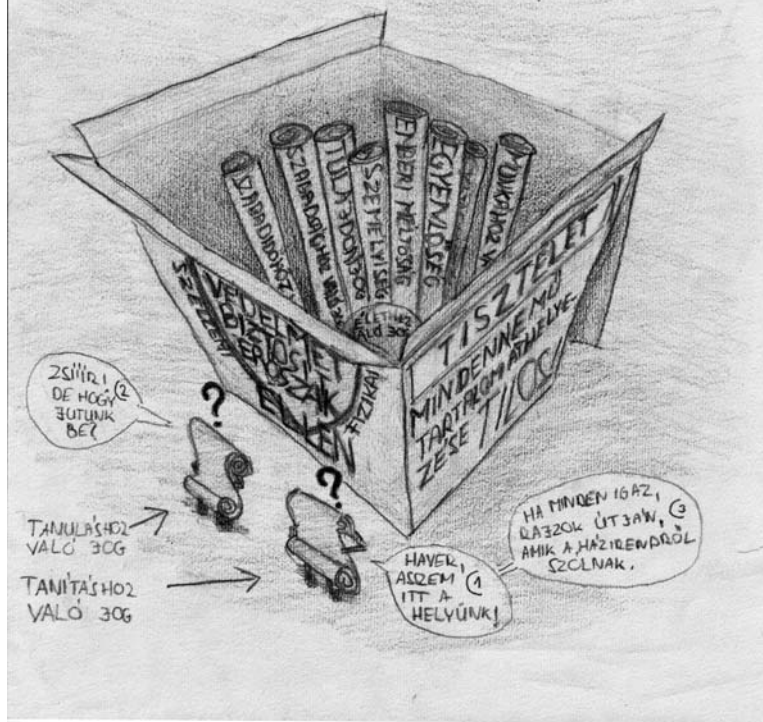 SZABADSÁGHOZ VALÓ
TULAJDONJOG
SZEMÉLYISÉG
EMBERI MÉLTÓSÁG
EGYENLŐSÉG
MUNKÁHOZ VA
ÉLETHEZ
VALÓ JOG
SZELLEMI
VÉDELMET
BIZTOSÍT
ERŐSZAK
ELLEN
FIZIKAI
TISZTELET
MINDENNEMŰ
TARTALOM ÁTHELYE-
ZÉSE TILOS!
ZSÍÍÍR! ②
DE HOGY
JUTUNK
BE?
?
?
TANULÁSHOZ
VALÓ JOG
TANÍTÁSHOZ
VALÓ JOG
HAVER,
ASZEM ①
ITT A
HELYÜNK!
HA MINDEN IGAZ, ③
RAJZOK ÚTJÁN,
AMIK A HÁZIRENDRŐL
SZÓLNAK.